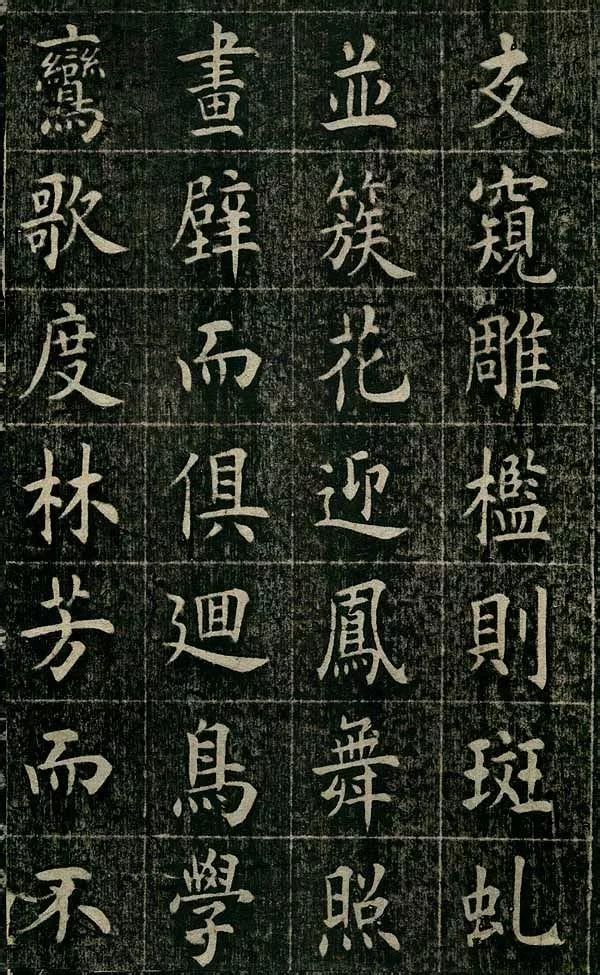 友窺雕檻則斑虬
並簇花迎鳳舞照
畫壁而俱迴鳥學
鸞歌度林芳而不